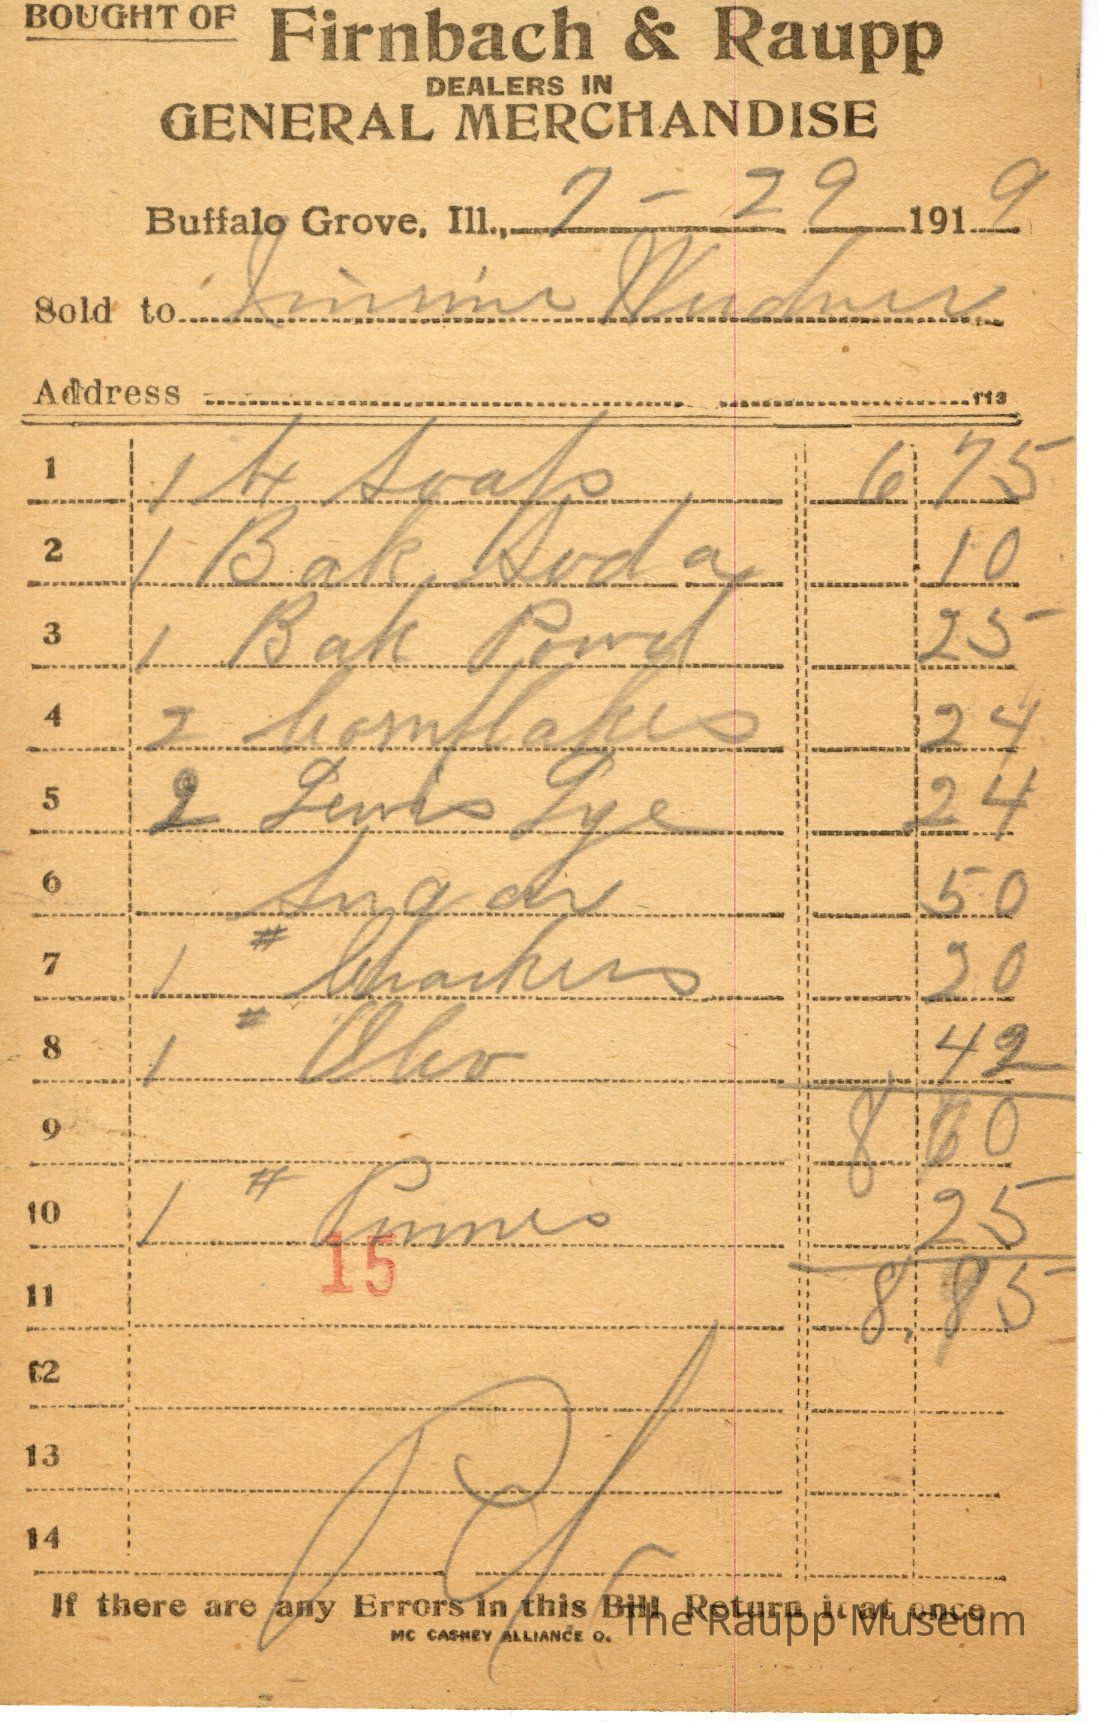 BOUGHT OF Firnbach & Raupp
DEALERS IN
GENERAL MERCHANDISE
Buffalo Grove, Ill., 7 - 29 1919
Sold to
Address
113
1 1 Soaps 6 75
2 1 Bak Soda 10
3 1 Bak Powd 25
4 2 Cornflakes 24
5 2 Lewis Lye 24
6 Sugar 50
7 1 # Crackers 20
8 1 # Oleo 42
9 8 60
10 1 # Prunes 25
15
11 8.85
12
13
14
If there are any Errors in this Bill Return it at once
MC CASKEY ALLIANCE O.
The Raupp Museum